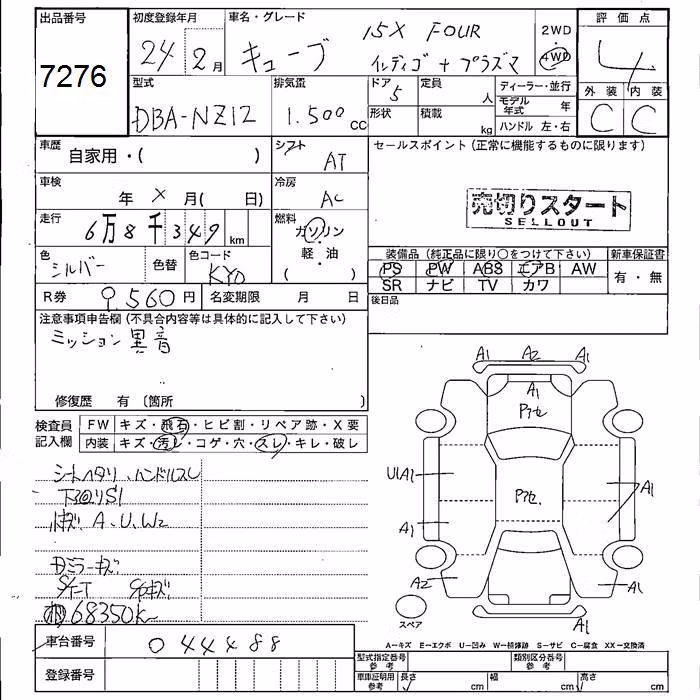 出品番号 初度登録年月 車名・グレード 15X FOUR 2WD 評価点
7276 24 2月 キューブ インディゴ+プラズマ 4WD 4
型式 排気量 ドア 5 定員 人 ディーラー・並行 外装 内装
DBA-NZ12 1.500cc 形状 積載 kg モデル年式 年 C C
ハンドル 左・右
車歴 自家用・( ) シフト AT セールスポイント(正常に機能するものに限ります)
車検 年 × 月( 日) 冷房 AC 売切りスタート
SELLOUT
走行 6万8千349km 燃料 ガソリン・軽・油
装備品(純正品に限り○をつけて下さい) 新車保証書
色 シルバー 色替 色コード KY0 PS PW ABS エアB AW 有・無
SR ナビ TV カワ
R券 9.560円 名変期限 月 日 後日品
注意事項申告欄(不具合内容等は具体的に記入して下さい)
ミッション異音
修復歴 有(箇所 )
検査員記入欄 FW キズ・飛石・ヒビ割・リペア跡・X要
内装 キズ・汚れ・コゲ・穴・スレ・キレ・破レ
シートヘタリ、ハンドルスレ
下回りS1
A、U、W2
ミラーキズ
68350K
A1 A2 A1
A1
Pアセ
Pアセ
U1A1
A1
A1
A2
A1
A1
スペア
A−キズ E−エクボ U−凹み W−補修跡 S−サビ C−腐食 XX−交換済
車台番号 044488
登録番号
型式指定番号 参考 類別区分番号 参考
車庫証明用 参考 長さ cm 幅 cm 高さ cm